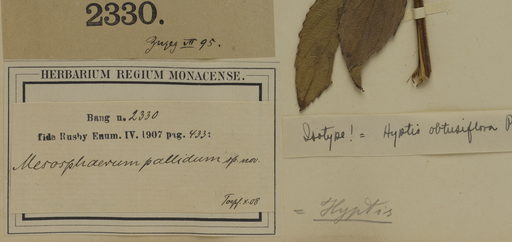 2330.
VII 95.
HERBARIUM REGIUM MONACENSE.
Bang n. 2330
fide Rusby Enum. IV. 1907 pag. 433:
Mesosphaerum pallidum sp. nov.
Töpf x.08
Isotype! = Hyptis obtusiflora P
= Hyptis